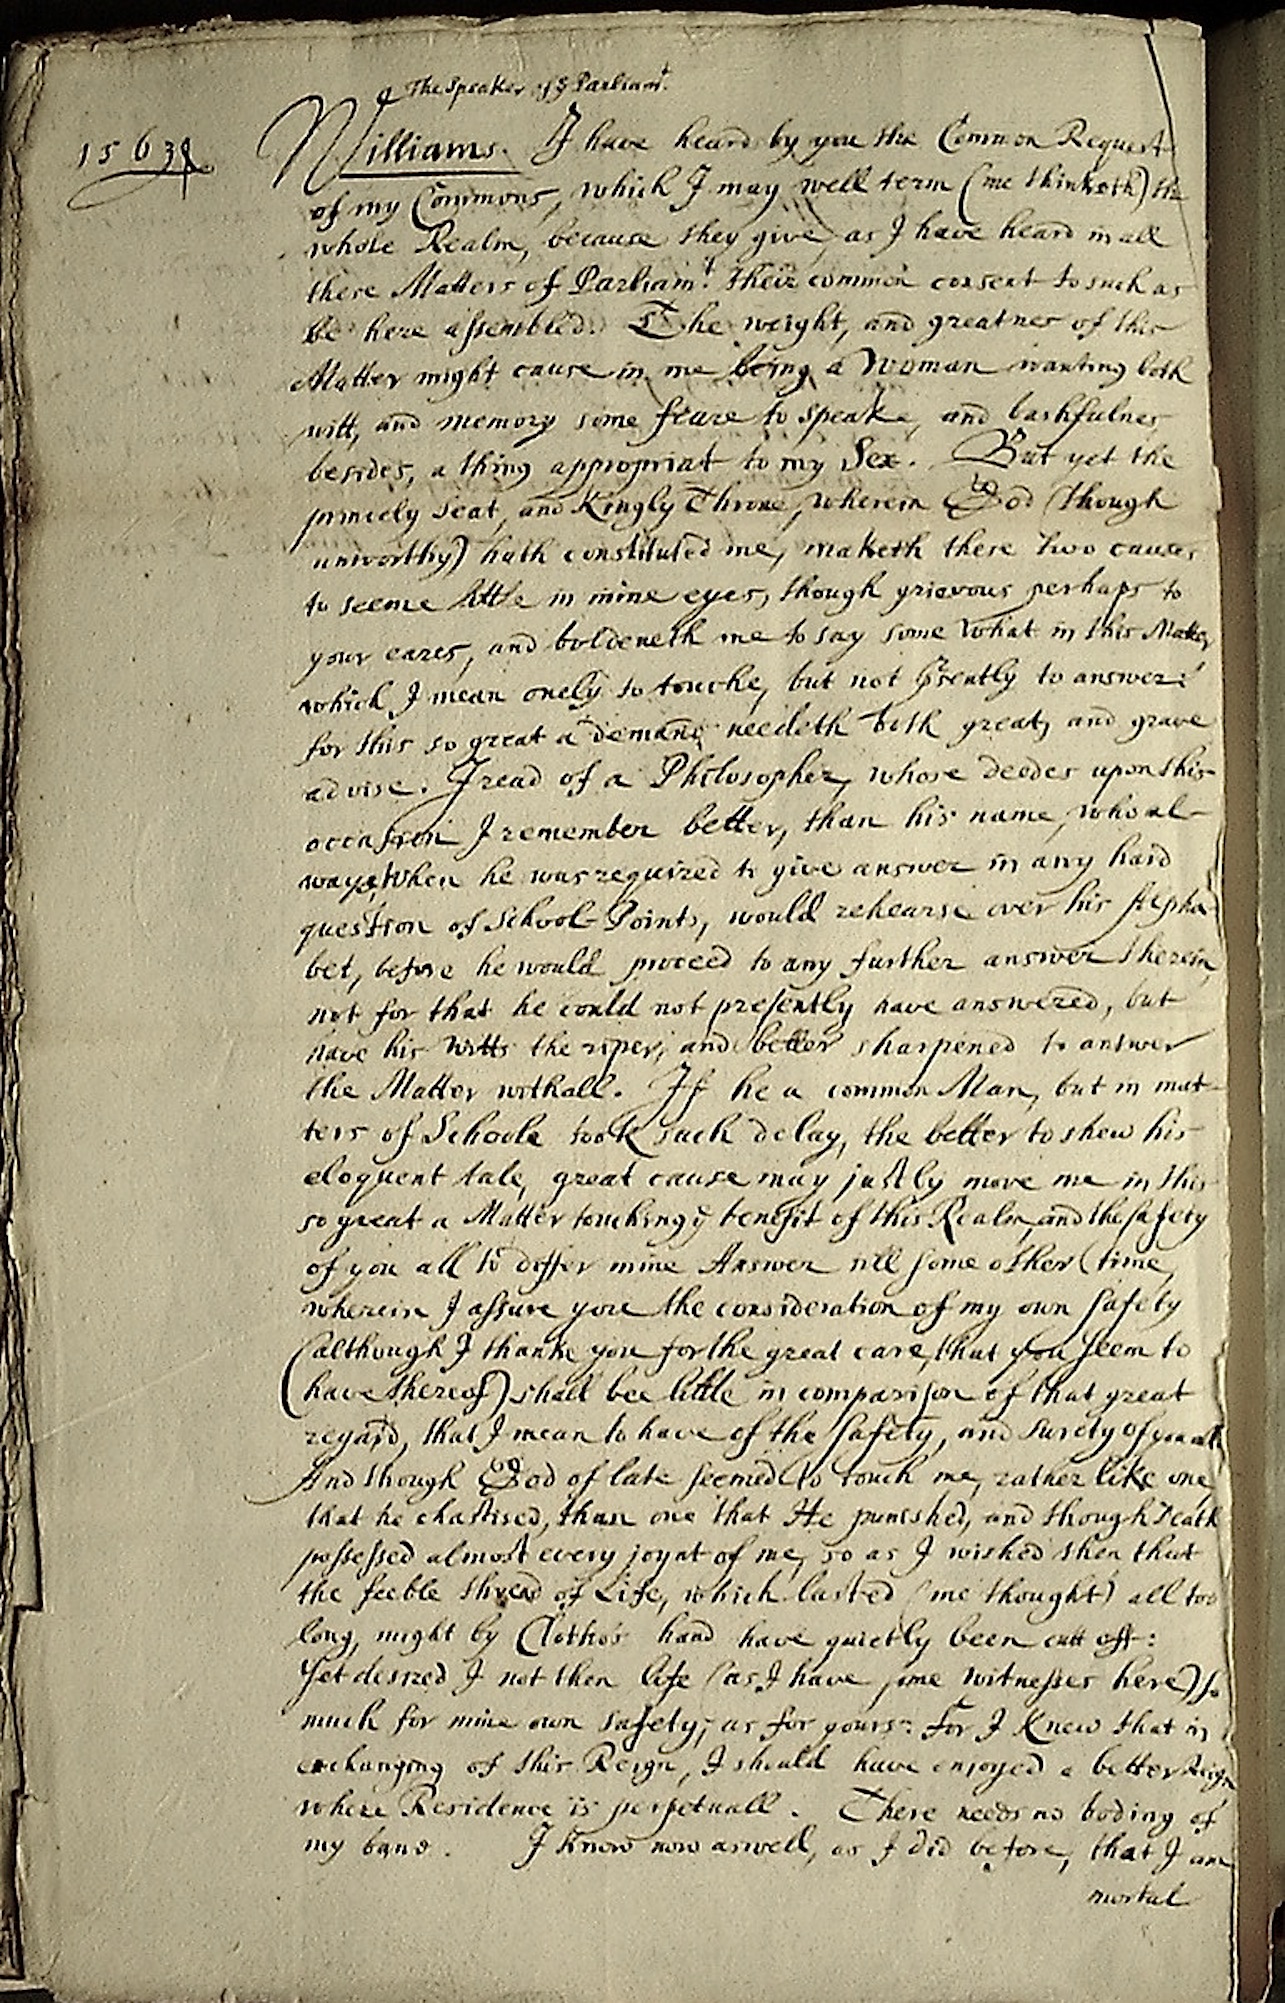 The Speaker of ye Parliamt.
1563
Williams. I have heard by you the Common Request
of my Commons, which I may well term (me thinketh) the
whole Realm, because they give, as I have heard in all
these Matters of Parliamt. their common consent to such as
be here assembled. The weight, and greatnes of this
Matter might cause in me being a Woman wanting both
witt, and memory some feare to speake, and bashfulnes
besides, a thing appropriat to my Sex. But yet the
princely seat, and Kingly Throne, wherein God (though
unworthy) hath constituted me, maketh these two causes
to seeme little in mine eyes, though grievous perhaps to
your eares, and boldeneth me to say some what in this Matter
which I mean onely to touche, but not prsently to answer:
for this so great a demand needeth both great, and grave
advise. I read of a Philosopher, whose deedes upon this
occasion I remember better, than his name, who al-
wayes when he was required to give answer in any hard
question of School-Points, would rehearse over his Alpha-
bet, before he would proceed to any further answer therein,
not for that he could not presently have answered, but
have his witts the riper, and better sharpened to answer
the Matter withall. If he a common Man, but in mat-
ters of Schoole took such delay, the better to shew his
eloquent tale, great cause may justly move me in this
so great a Matter touching ye benefit of this Realm, and the safety
of you all to differ mine Answer till some other time,
wherein I assure you the consideration of my own safety
(although I thanke you for the great care, that you seem to
have thereof) shall bee little in comparison of that great
regard, that I mean to have of the safety, and surety of you all
And though God of late seemed to touch me, rather like one
that he chastised, than one that He punished, and though Death
possessed almost every joynt of me, so as I wished then that
the feeble thread of Life, which lasted (me thought) all too
long, might by Clotho's hand have quietly been cutt off:
Yet desired I not then life (as I have some witnesses here) so
much for mine own safety, as for yours: For I knew that in
exchanging of this Reign, I should have enjoyed a better Reign
where Residence is perpetuall. There needs no boding of
my bane. I know now aswell, as I did before, that I am
mortal